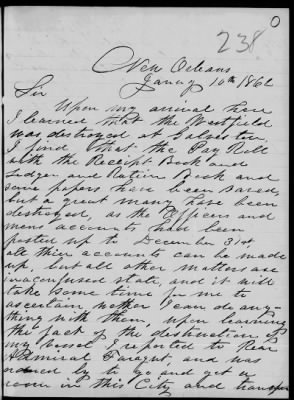 0
238
New Orleans
Jan'y 10th 1862
Sir
Upon my arrival here
I learned that the Westfield
was destroyed at Galveston
I find that the Pay Roll
with the Receipt Book and
Ledger and Ration Book and
some papers have been saved,
but a great many have been
destroyed, as the Officers and
mens accounts had been
posted up to December 31st
all thier accounts can be made
up but all other matters are
in a confused state, and it will
take some time for me to
ascertain wether I can do any-
thing with them, upon learning
the fact of the destruction of
my vessel I reported to Rear
Admiral Faragut and was
ordered by to go and get a
room in this City and